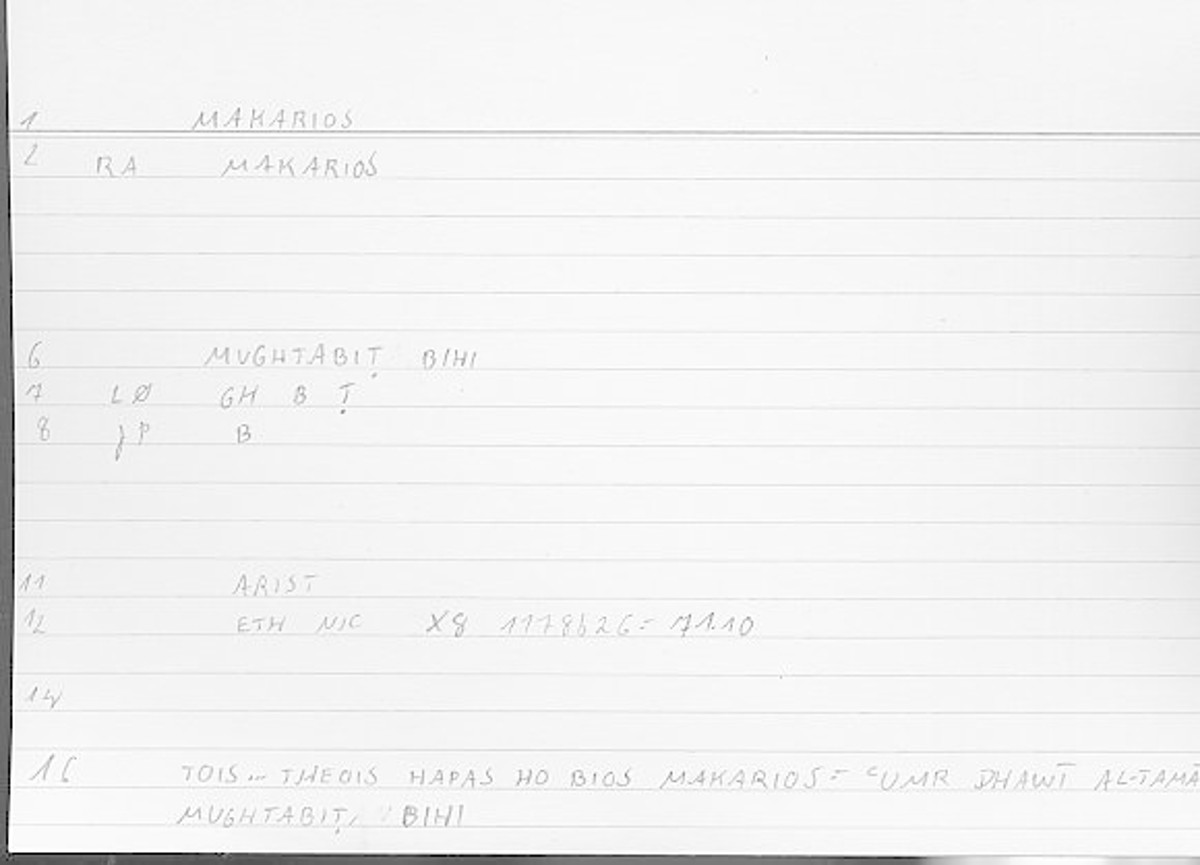 1 MAKARIOS
2 RA MAKARIOS
6 MUGHTABIṬ BIHI
7 LØ GH B Ṭ
8 jP B
11 ARIST
12 ETH NIC X8 1178b26= 71.10
14
16 TOIS... THEOIS HAPAS HO BIOS MAKARIOS= ʿUMR DHAWĪ AL-TAMĀ
MUGHTABIṬ, BIHI